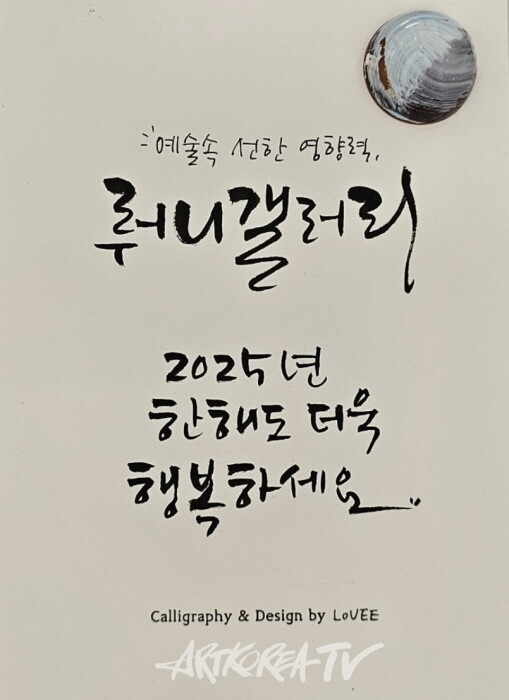 예술속 선한 영향력,
루니갤러리
2025년
한해도 더욱
행복하세요
Calligraphy & Design by LoVEE
ARTKOREA TV